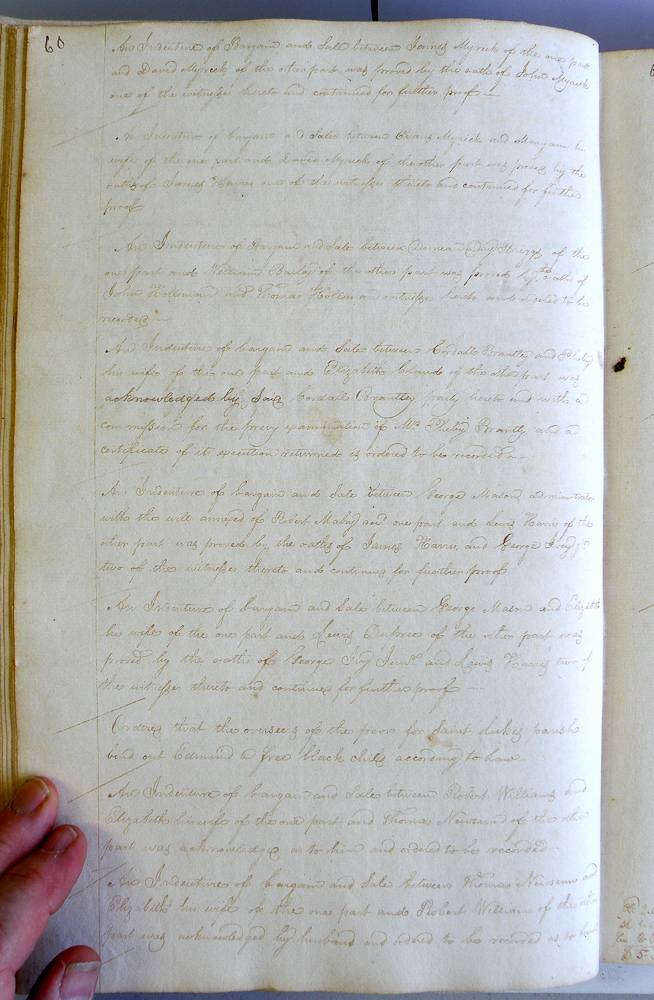 60
An Indenture of Bargain and Sale between James Myrick of the one part
and David Myrick of the other part was proved by the oath of John Myrick
one of the witnesses hereto and continued for further proof —
An Indenture of bargain and Sale between Evans Myrick and Mary ann his
wife of the one part and David Myrick of the other part was proved by the
oaths of James Harris one of the witnesses thereto and continued for further
proof
An Indenture of Bargain and Sale between of the
one part and William Bailey of the other part was proved by the oaths of
John Holleman and Thomas Holleman witnesses hereto and ordered to be
recorded —
An Indenture of bargain and Sale between Cordall Brantley and
his wife of the one part and Elizabeth Claud of the other part was
acknowledged by Said Cordall Brantley party hereto and with a
commission for the privy examination of Mrs. Brantley and a
certificate of its execution returned is ordered to be recorded —
An Indenture of bargain and Sale between George Mason administrator
with the will annexed of Robert Mabry one part and Lewis Harris of the
other part was proved by the oaths of James Harris and George Ivey jr
two of the witnesses thereto and continued for further proof
An Indenture of bargain and Sale between George Mason and Elizabeth
his wife of the one part and Lewis Dupree of the other part was
proved by the oaths of George Ivy Junr. and Lewis Harris two of
the witnesses thereto and continued for further proof —
Ordered that the overseers of the poor for Saint Lukes parish
bind out Edmund a free black child according to law
An Indenture of bargain and Sale between Robert Williams and
Elizabeth his wife of the one part and Thomas Newsum of the other
part was acknowledged as to him and ordered to be recorded —
An Indenture of bargain and Sale between Thomas Newsum and
Elizabeth his wife of the one part and Robert Williams of the other
part was acknowledged by husband and ordered to be recorded as to